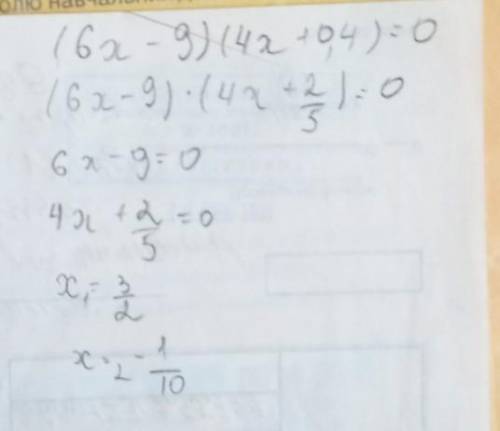 олю навчальних
(6x - 9)(4x + 0,4) = 0
(6x - 9) · (4x + 2/5) = 0
6x - 9 = 0
4x + 2/5 = 0
x₁ = 3/2
x₂ = -1/10